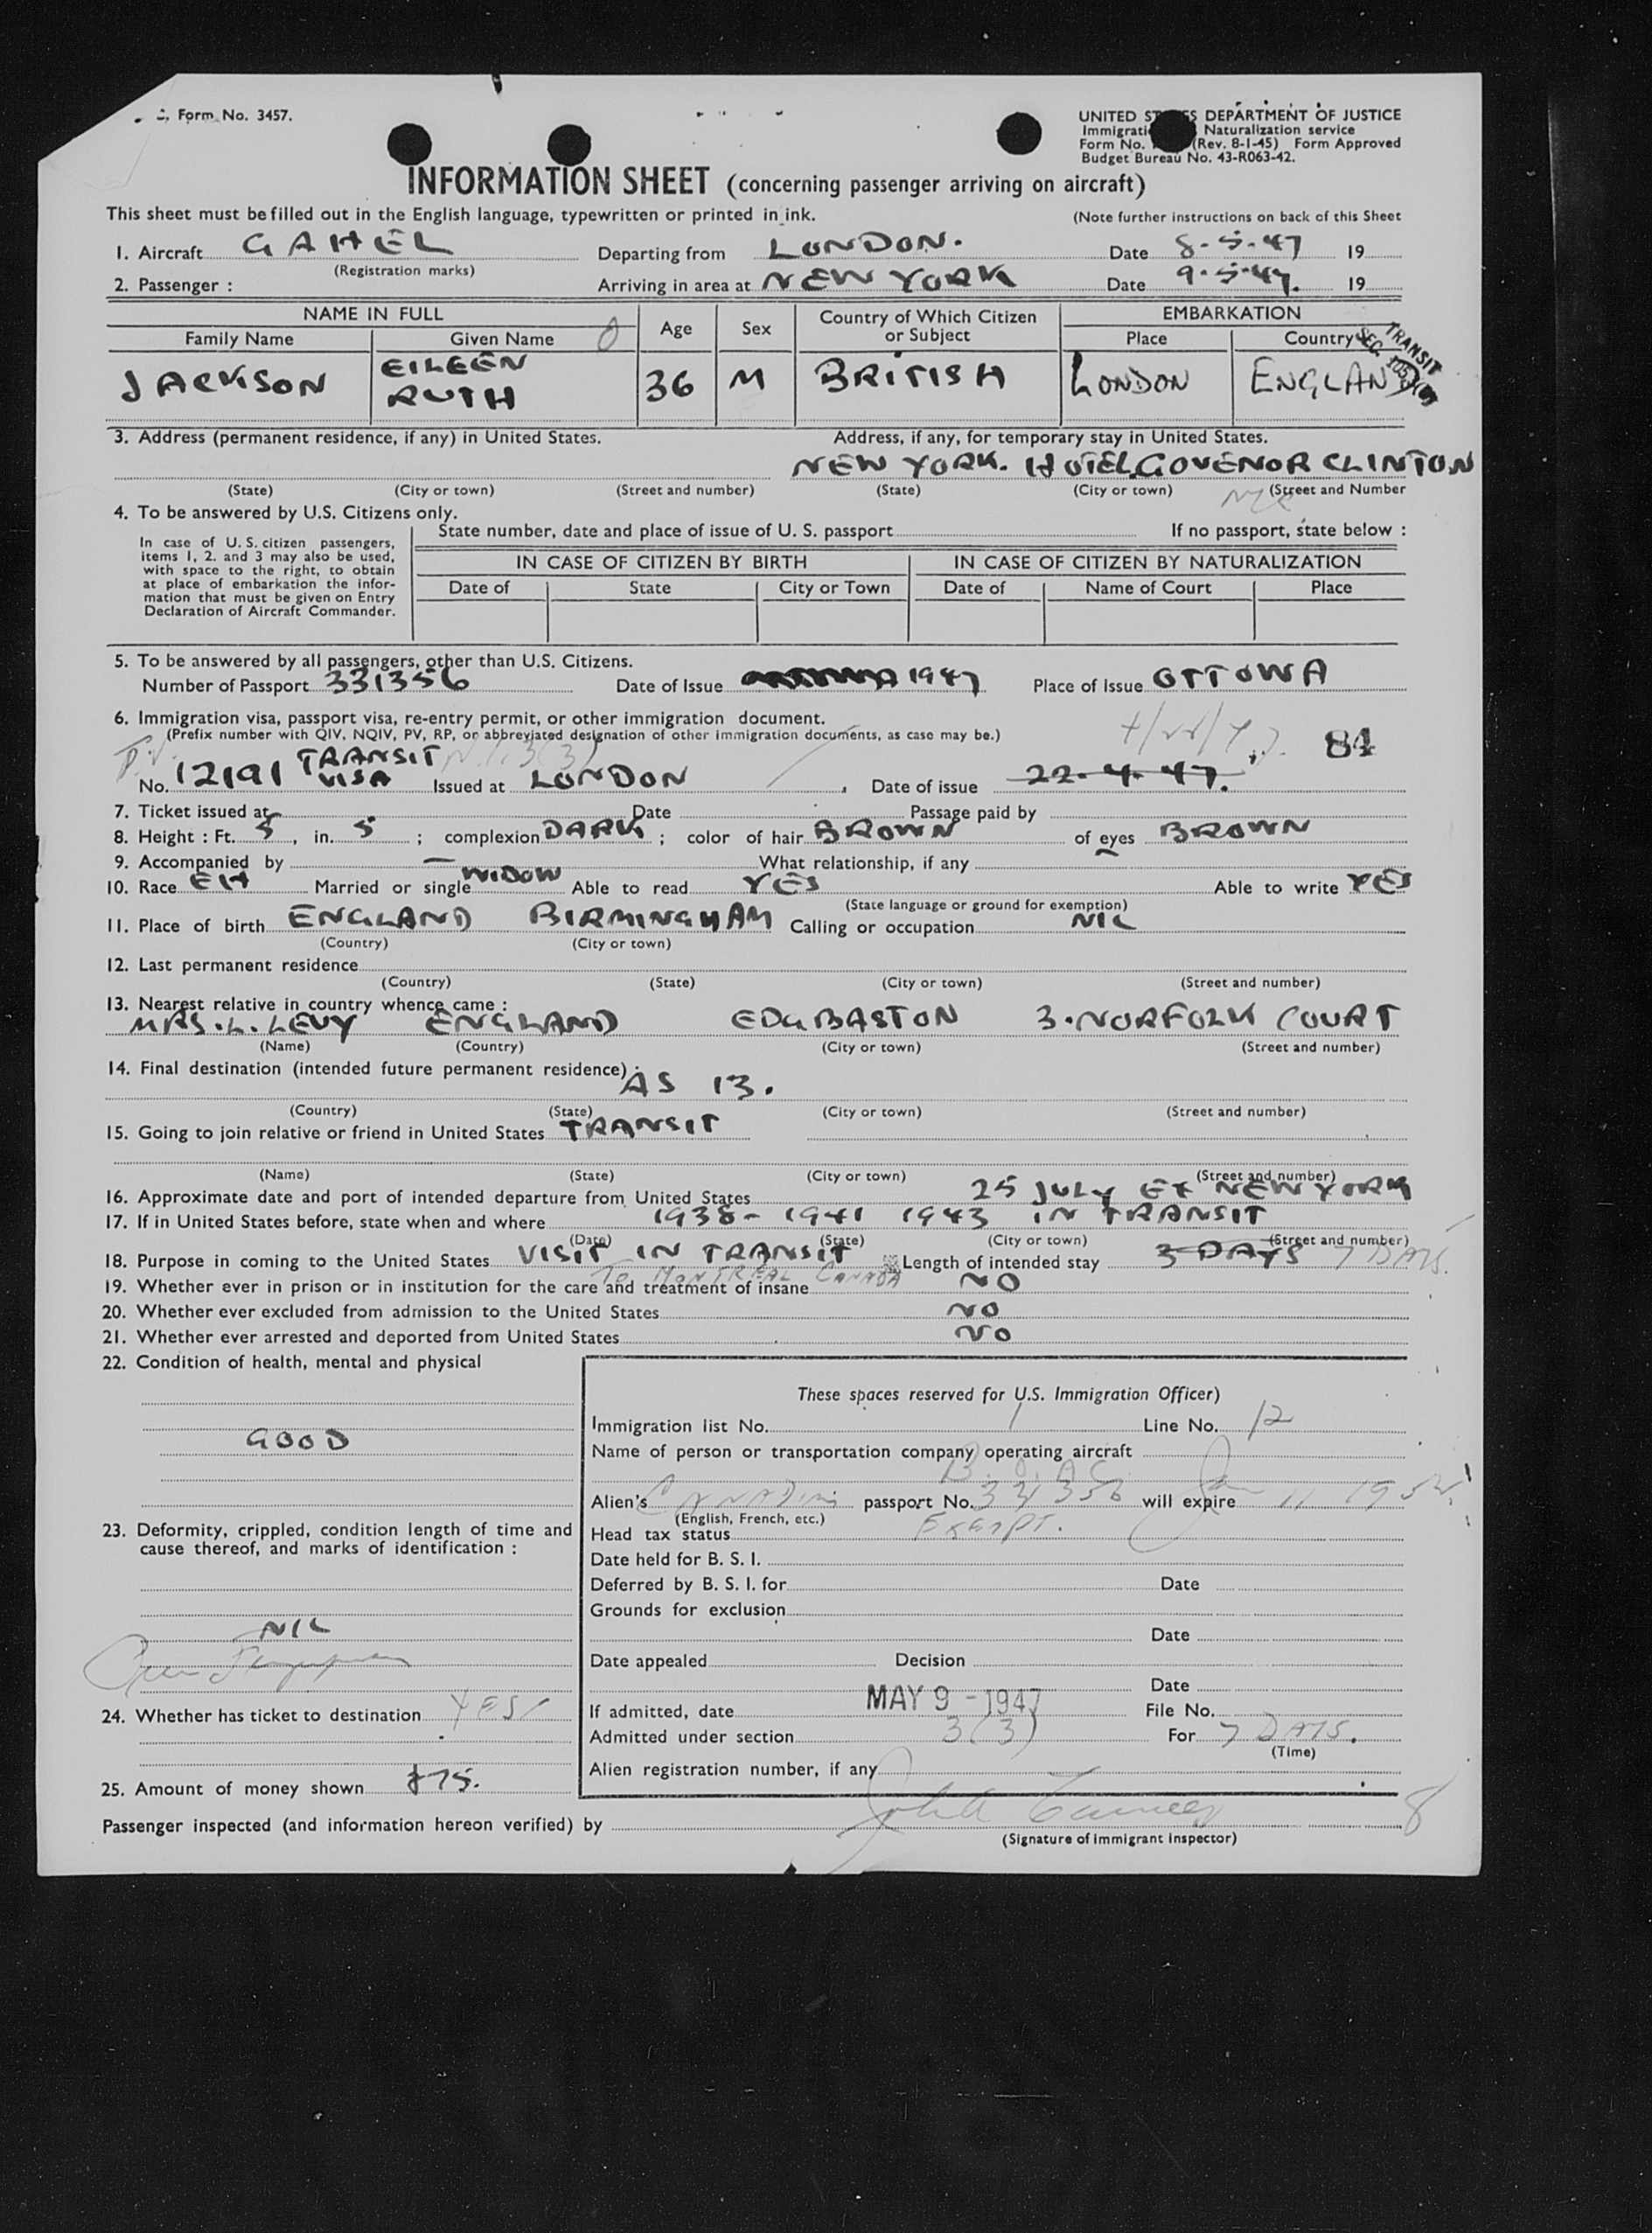 Form No. 3457.
UNITED STATES DEPARTMENT OF JUSTICE
Immigrati Naturalization service
Form No. (Rev. 8-1-45) Form Approved
Budget Bureau No. 43-R063-42.
INFORMATION SHEET (concerning passenger arriving on aircraft)
This sheet must be filled out in the English language, typewritten or printed in ink. (Note further instructions on back of this Sheet
1. Aircraft GAHEL Departing from LONDON. Date 8-5-47 19
(Registration marks)
2. Passenger : Arriving in area at NEW YORK Date 9-5-47. 19
NAME IN FULL Age Sex Country of Which Citizen or Subject EMBARKATION
Family Name Given Name Place Country
TRANSIT
JACKSON EILEEN RUTH 36 M BRITISH LONDON ENGLAND
3. Address (permanent residence, if any) in United States. Address, if any, for temporary stay in United States.
NEW YORK. HOTEL GOVENOR CLINTON
(State) (City or town) (Street and number) (State) (City or town) (Street and Number
NYC
4. To be answered by U.S. Citizens only.
State number, date and place of issue of U. S. passport If no passport, state below :
In case of U. S. citizen passengers,
items 1, 2. and 3 may also be used,
with space to the right, to obtain
at place of embarkation the infor-
mation that must be given on Entry
Declaration of Aircraft Commander.
IN CASE OF CITIZEN BY BIRTH IN CASE OF CITIZEN BY NATURALIZATION
Date of State City or Town Date of Name of Court Place
5. To be answered by all passengers, other than U.S. Citizens.
Number of Passport 331356 Date of Issue 1947 Place of Issue OTTOWA
6. Immigration visa, passport visa, re-entry permit, or other immigration document.
(Prefix number with QIV, NQIV, PV, RP, or abbreviated designation of other immigration documents, as case may be.)
4/22/47. 84
P.V. TRANSIT 3(3)
No. 12191 VISA Issued at LONDON Date of issue 22.4.47.
7. Ticket issued at Date Passage paid by
8. Height : Ft. 5, in. 5 ; complexion DARK ; color of hair BROWN of eyes BROWN
9. Accompanied by — What relationship, if any
10. Race EH Married or single WIDOW Able to read YES Able to write YES
(State language or ground for exemption)
11. Place of birth ENGLAND BIRMINGHAM Calling or occupation NIL
(Country) (City or town)
12. Last permanent residence
(Country) (State) (City or town) (Street and number)
13. Nearest relative in country whence came :
MRS. L. LEVY ENGLAND EDGBASTON 3. NORFOLK COURT
(Name) (Country) (City or town) (Street and number)
14. Final destination (intended future permanent residence) : AS 13.
(Country) (State) (City or town) (Street and number)
15. Going to join relative or friend in United States TRANSIT
(Name) (State) (City or town) (Street and number)
16. Approximate date and port of intended departure from United States 25 JULY EX NEW YORK
17. If in United States before, state when and where 1938 - 1941 1943 IN TRANSIT
(Date) (State) (City or town) (Street and number)
18. Purpose in coming to the United States VISIT IN TRANSIT Length of intended stay 3 DAYS 7 DAYS.
TO MONTREAL CANADA
19. Whether ever in prison or in institution for the care and treatment of insane NO
20. Whether ever excluded from admission to the United States NO
21. Whether ever arrested and deported from United States NO
22. Condition of health, mental and physical
GOOD
23. Deformity, crippled, condition length of time and
cause thereof, and marks of identification :
NIL
24. Whether has ticket to destination YES
25. Amount of money shown $75.
These spaces reserved for U.S. Immigration Officer)
Immigration list No. 1 Line No. 12
Name of person or transportation company operating aircraft
B.O.A.C.
Alien's CANADIAN passport No. 331356 will expire Jan 11 1952
(English, French, etc.)
Head tax status EXEMPT.
Date held for B. S. I.
Deferred by B. S. I. for Date
Grounds for exclusion
Date
Date appealed Decision
Date
If admitted, date MAY 9 - 1947 File No.
Admitted under section 3(3) For 7 DAYS.
(Time)
Alien registration number, if any
Passenger inspected (and information hereon verified) by 8
(Signature of Immigrant Inspector)